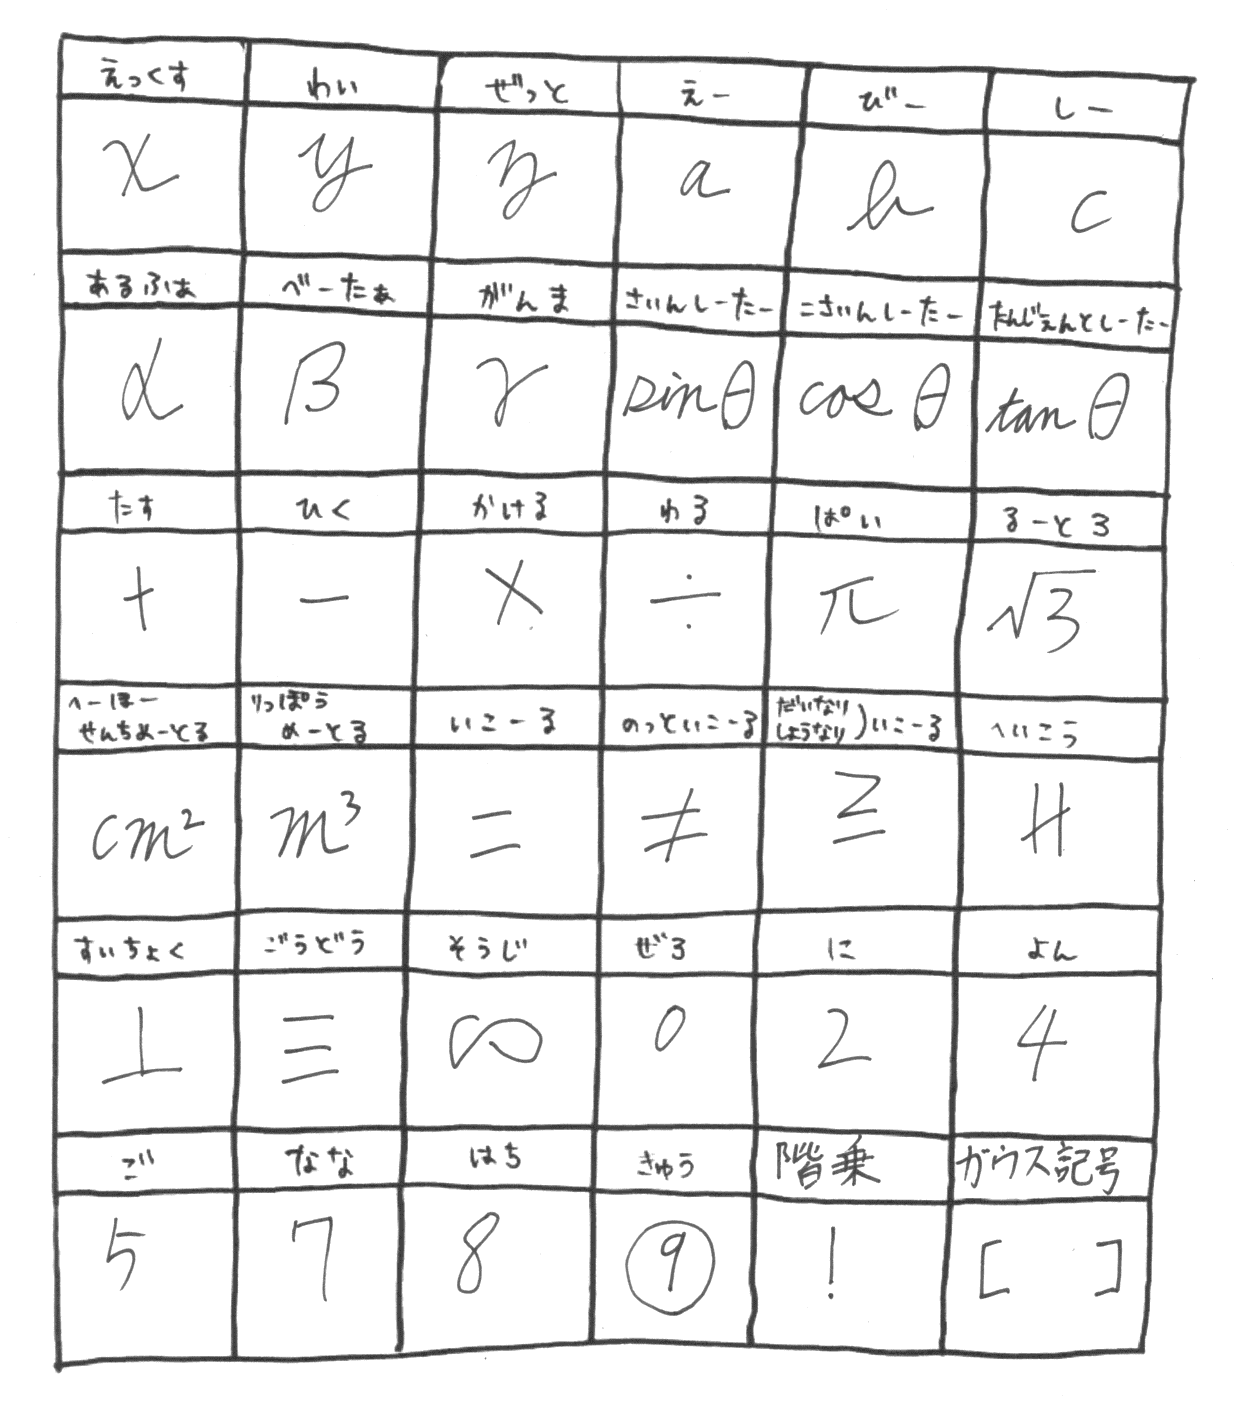 えっくす わい ぜっと えー びー しー
x y z a b c
あるふぁ べーたぁ がんま さいんしーたー こさいんしーたー たんじぇんとしーたー
α β γ sinθ cosθ tanθ
たす ひく かける わる ぱい るーとろ
+ − × ÷ π √3
へーほー
せんちめーとる
りっぽう
めーとる
いこーる のっといこーる
だいなり
しょうなり
)いこーる へいこう
cm² m³ = ≠ ≧ //
すいちょく ごうどう そうじ ぜろ に よん
⊥ ≡ ∽ 0 2 4
ご なな はち きゅう 階乗 ガウス記号
5 7 8 ⑨ ! [ ]